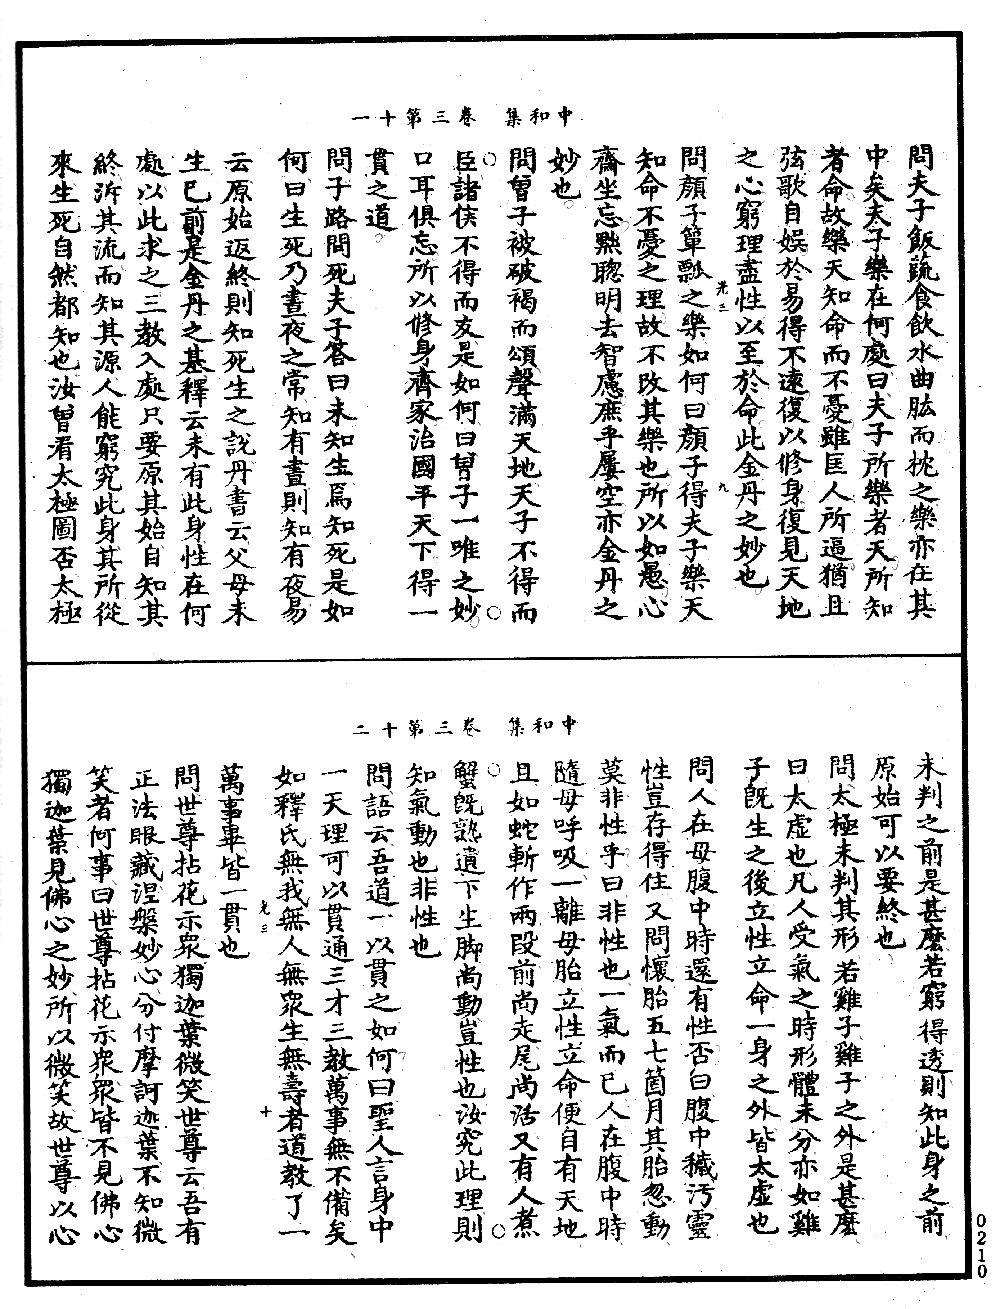 中和集　卷三第十一
問夫子飯蔬食飲水曲肱而枕之樂亦在其
中矣夫子樂在何處曰夫子所樂者天所知
者命故樂天知命而不憂雖匡人所逼猶且
弦歌自娛於易得不遠復以修身復見天地
之心窮理盡性以至於命此金丹之妙也
光三
九
問顏子簞瓢之樂如何曰顏子得夫子樂天
知命不憂之理故不改其樂也所以如愚心
齋坐忘黜聰明去智慮庶乎屢空亦金丹之
妙也
問曾子被破褐而頌聲滿天地天子不得而
臣諸侯不得而友是如何曰曾子一唯之妙
口耳俱忘所以修身齊家治國平天下得一
貫之道
問子路問死夫子答曰未知生焉知死是如
何曰生死乃晝夜之常知有晝則知有夜易
云原始返終則知死生之說丹書云父母未
生已前是金丹之基釋云未有此身性在何
處以此求之三教入處只要原其始自知其
終泝其流而知其源人能窮究此身其所從
來生死自然都知也汝曾看太極圖否太極
中和集　卷三第十二
未判之前是甚麼若窮得透則知此身之前
原始可以要終也
問太極未判其形若雞子雞子之外是甚麼
曰太虛也凡人受氣之時形體未分亦如雞
子既生之後立性立命一身之外皆太虛也
問人在母腹中時還有性否曰腹中穢污靈
性豈存得住又問懷胎五七箇月其胎忽動
莫非性乎曰非性也一氣而已人在腹中時
隨母呼吸一離母胎立性立命便自有天地
且如蛇斬作兩段前尚走尾尚活又有人煮
蟹既熟遺下生脚尚動豈性也汝究此理則
知氣動也非性也
問語云吾道一以貫之如何曰聖人言身中
一天理可以貫通三才三教萬事無不備矣
如釋氏無我無人無眾生無壽者道教了一
萬事畢皆一貫也
光三
十
問世尊拈花示眾獨迦葉微笑世尊云吾有
正法眼藏涅槃妙心分付摩訶迦葉不知微
笑者何事曰世尊拈花示眾眾皆不見佛心
獨迦葉見佛心之妙所以微笑故世尊以心
0210